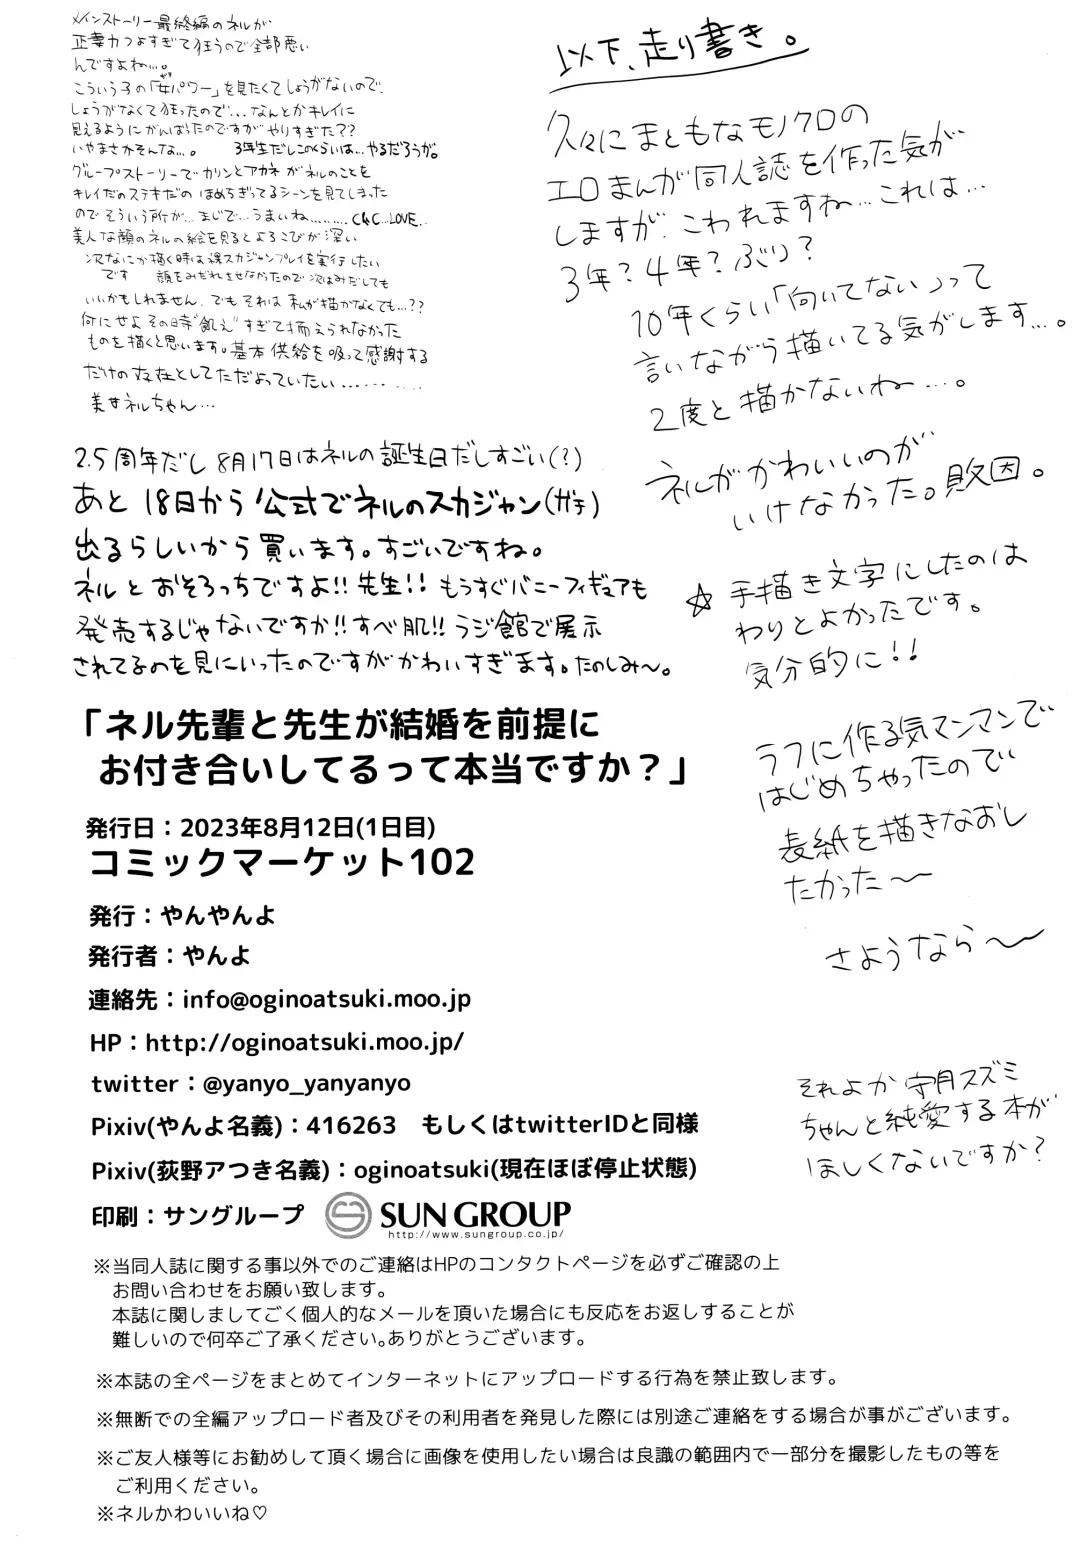 メインストーリー最終編のネルが
正妻力つよすぎて狂うので全部悪い
んですよね…。
こういう子の「女パワー」を見たくてしょうがないので、
しょうがなくて狂ったので…なんとかキレイに
見えるようにがんばったのですがやりすぎた??
いやまさかそんな…。 3年生だしこのくらいは…やるだろうが。
グループストーリーでカリンとアカネがネルのことを
キレイだのステキだの ほめちぎってるシーンを見てしまった
のでそういう所が…まじで…うまいね………C&C…LOVE..
美人な顔のネルの絵を見るとよろこびが深い
次なにか描く時は裸スカジャンプレイを実行したい
です 顔をみだれさせなかったので次はみだしても
いいかもしれません、でもそれは私が描かなくても…??
何にせよその時"飢え"すぎて抑えられなかった
ものを描くと思います。基本供給を吸って感謝する
だけの存在としてただよっていたい…………
美女ネルちゃん…
2.5周年だし8月17日はネルの誕生日だしすごい(?)
あと18日から公式でネルのスカジャン(ガチ)
出るらしいから買います。すごいですね。
ネルとおそろっちですよ!!先生!!もうすぐバニーフィギュアも
発売するじゃないですか!!すべ肌!!ラジ館で展示
されてるのを見にいったのですがかわいすぎます。たのしみ〜。
以下、走り書き。
久々にまともなモノクロの
エロまんが同人誌を作った気が
しますが、こわれますね…これは…
3年?4年?ぶり?
10年くらい「向いてない」って
言いながら描いてる気がします…。
2度と描かないね…。
ネルがかわいいのが
いけなかった。敗因。
☆ 手描き文字にしたのは
わりとよかったです。
気分的に!!
ラフに作る気マンマンで
はじめちゃったので
表紙を描きなおし
たかった〜
さようなら〜
それよか 守月スズミ
ちゃんと純愛する本が
ほしくないですか?
「ネル先輩と先生が結婚を前提に
お付き合いしてるって本当ですか？」
発行日：2023年8月12日(1日目)
コミックマーケット102
発行：やんやんよ
発行者：やんよ
連絡先：info@oginoatsuki.moo.jp
HP：http://oginoatsuki.moo.jp/
twitter：@yanyo_yanyanyo
Pixiv(やんよ名義)：416263　もしくはtwitterIDと同様
Pixiv(荻野アつき名義)：oginoatsuki(現在ほぼ停止状態)
印刷：サングループ SUN GROUP
http://www.sungroup.co.jp/
※当同人誌に関する事以外でのご連絡はHPのコンタクトページを必ずご確認の上
お問い合わせをお願い致します。
本誌に関しましてごく個人的なメールを頂いた場合にも反応をお返しすることが
難しいので何卒ご了承ください。ありがとうございます。
※本誌の全ページをまとめてインターネットにアップロードする行為を禁止致します。
※無断での全編アップロード者及びその利用者を発見した際には別途ご連絡をする場合が事がございます。
※ご友人様等にお勧めして頂く場合に画像を使用したい場合は良識の範囲内で一部分を撮影したもの等を
ご利用ください。
※ネルかわいいね♡